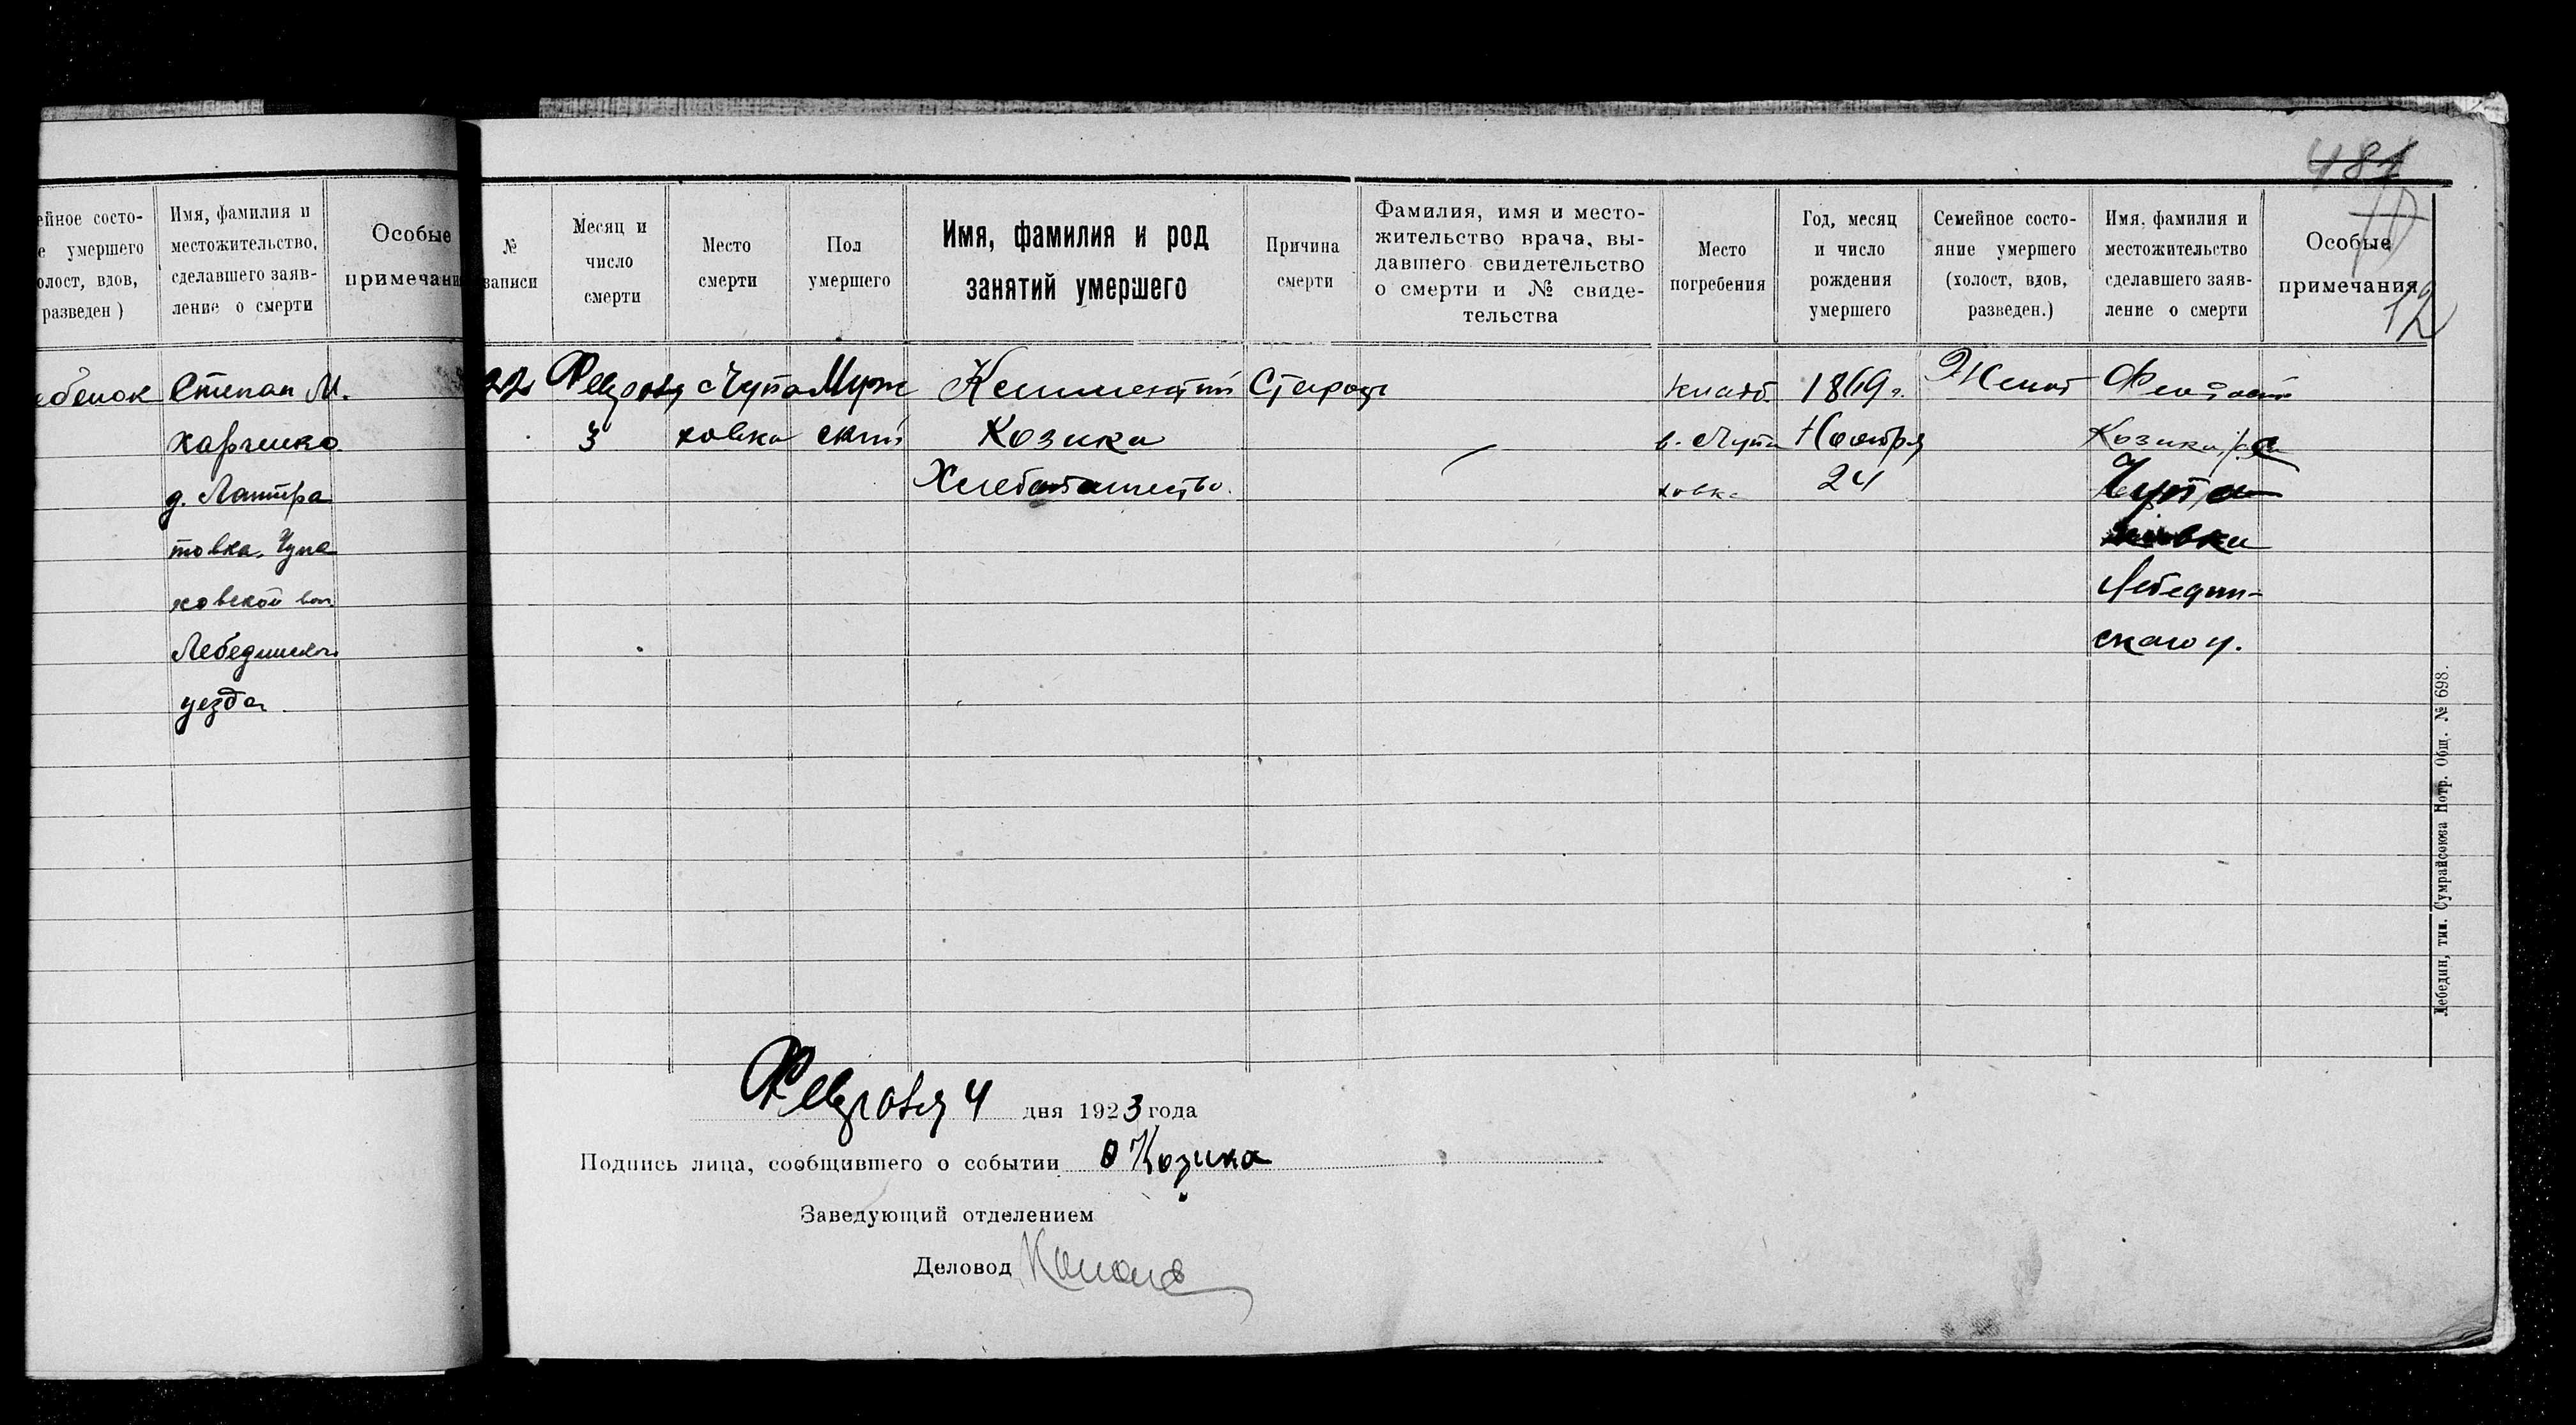 481
10
12
ейное состо-
е умершего
олост, вдов,
разведен)
Имя, фамилия и
местожительство,
сделавшего заяв-
ление о смерти
Особые
примечани
ебенок Степан М.
Харченко
д. Лантра
товка, Чупа
ховской вол.
Лебединског
уезда
№
записи
Месяц и
число
смерти
Место
смерти
Пол
умершего
Имя, фамилия и род
занятий умершего
Причина
смерти
Фамилия, имя и место-
жительство врача, вы-
давшего свидетельство
о смерти и № свиде-
тельства
Место
погребения
Год, месяц
и число
рождения
умершего
Семейное состо-
яние умершего
(холост, вдов,
разведен.)
Имя, фамилия и
местожительство
сделавшего заяв-
ление о смерти
Особые
примечания
22 Февраля с Чупа Муж Климентий Старость кладб. 1849 г. Женат
3 ховка ский Козика в. Чупа Ноября Козика
Хлебопашество. ховка 24 Чупа
ховки
Лебедин-
скаго у.
Февраля 4 дня 1923 года
Подпись лица, сообщившего о событии Ѳ Козика
Заведующий отделением
Деловод
Лебедин, тип. Сумрайсоюза Потр. Общ. № 698.